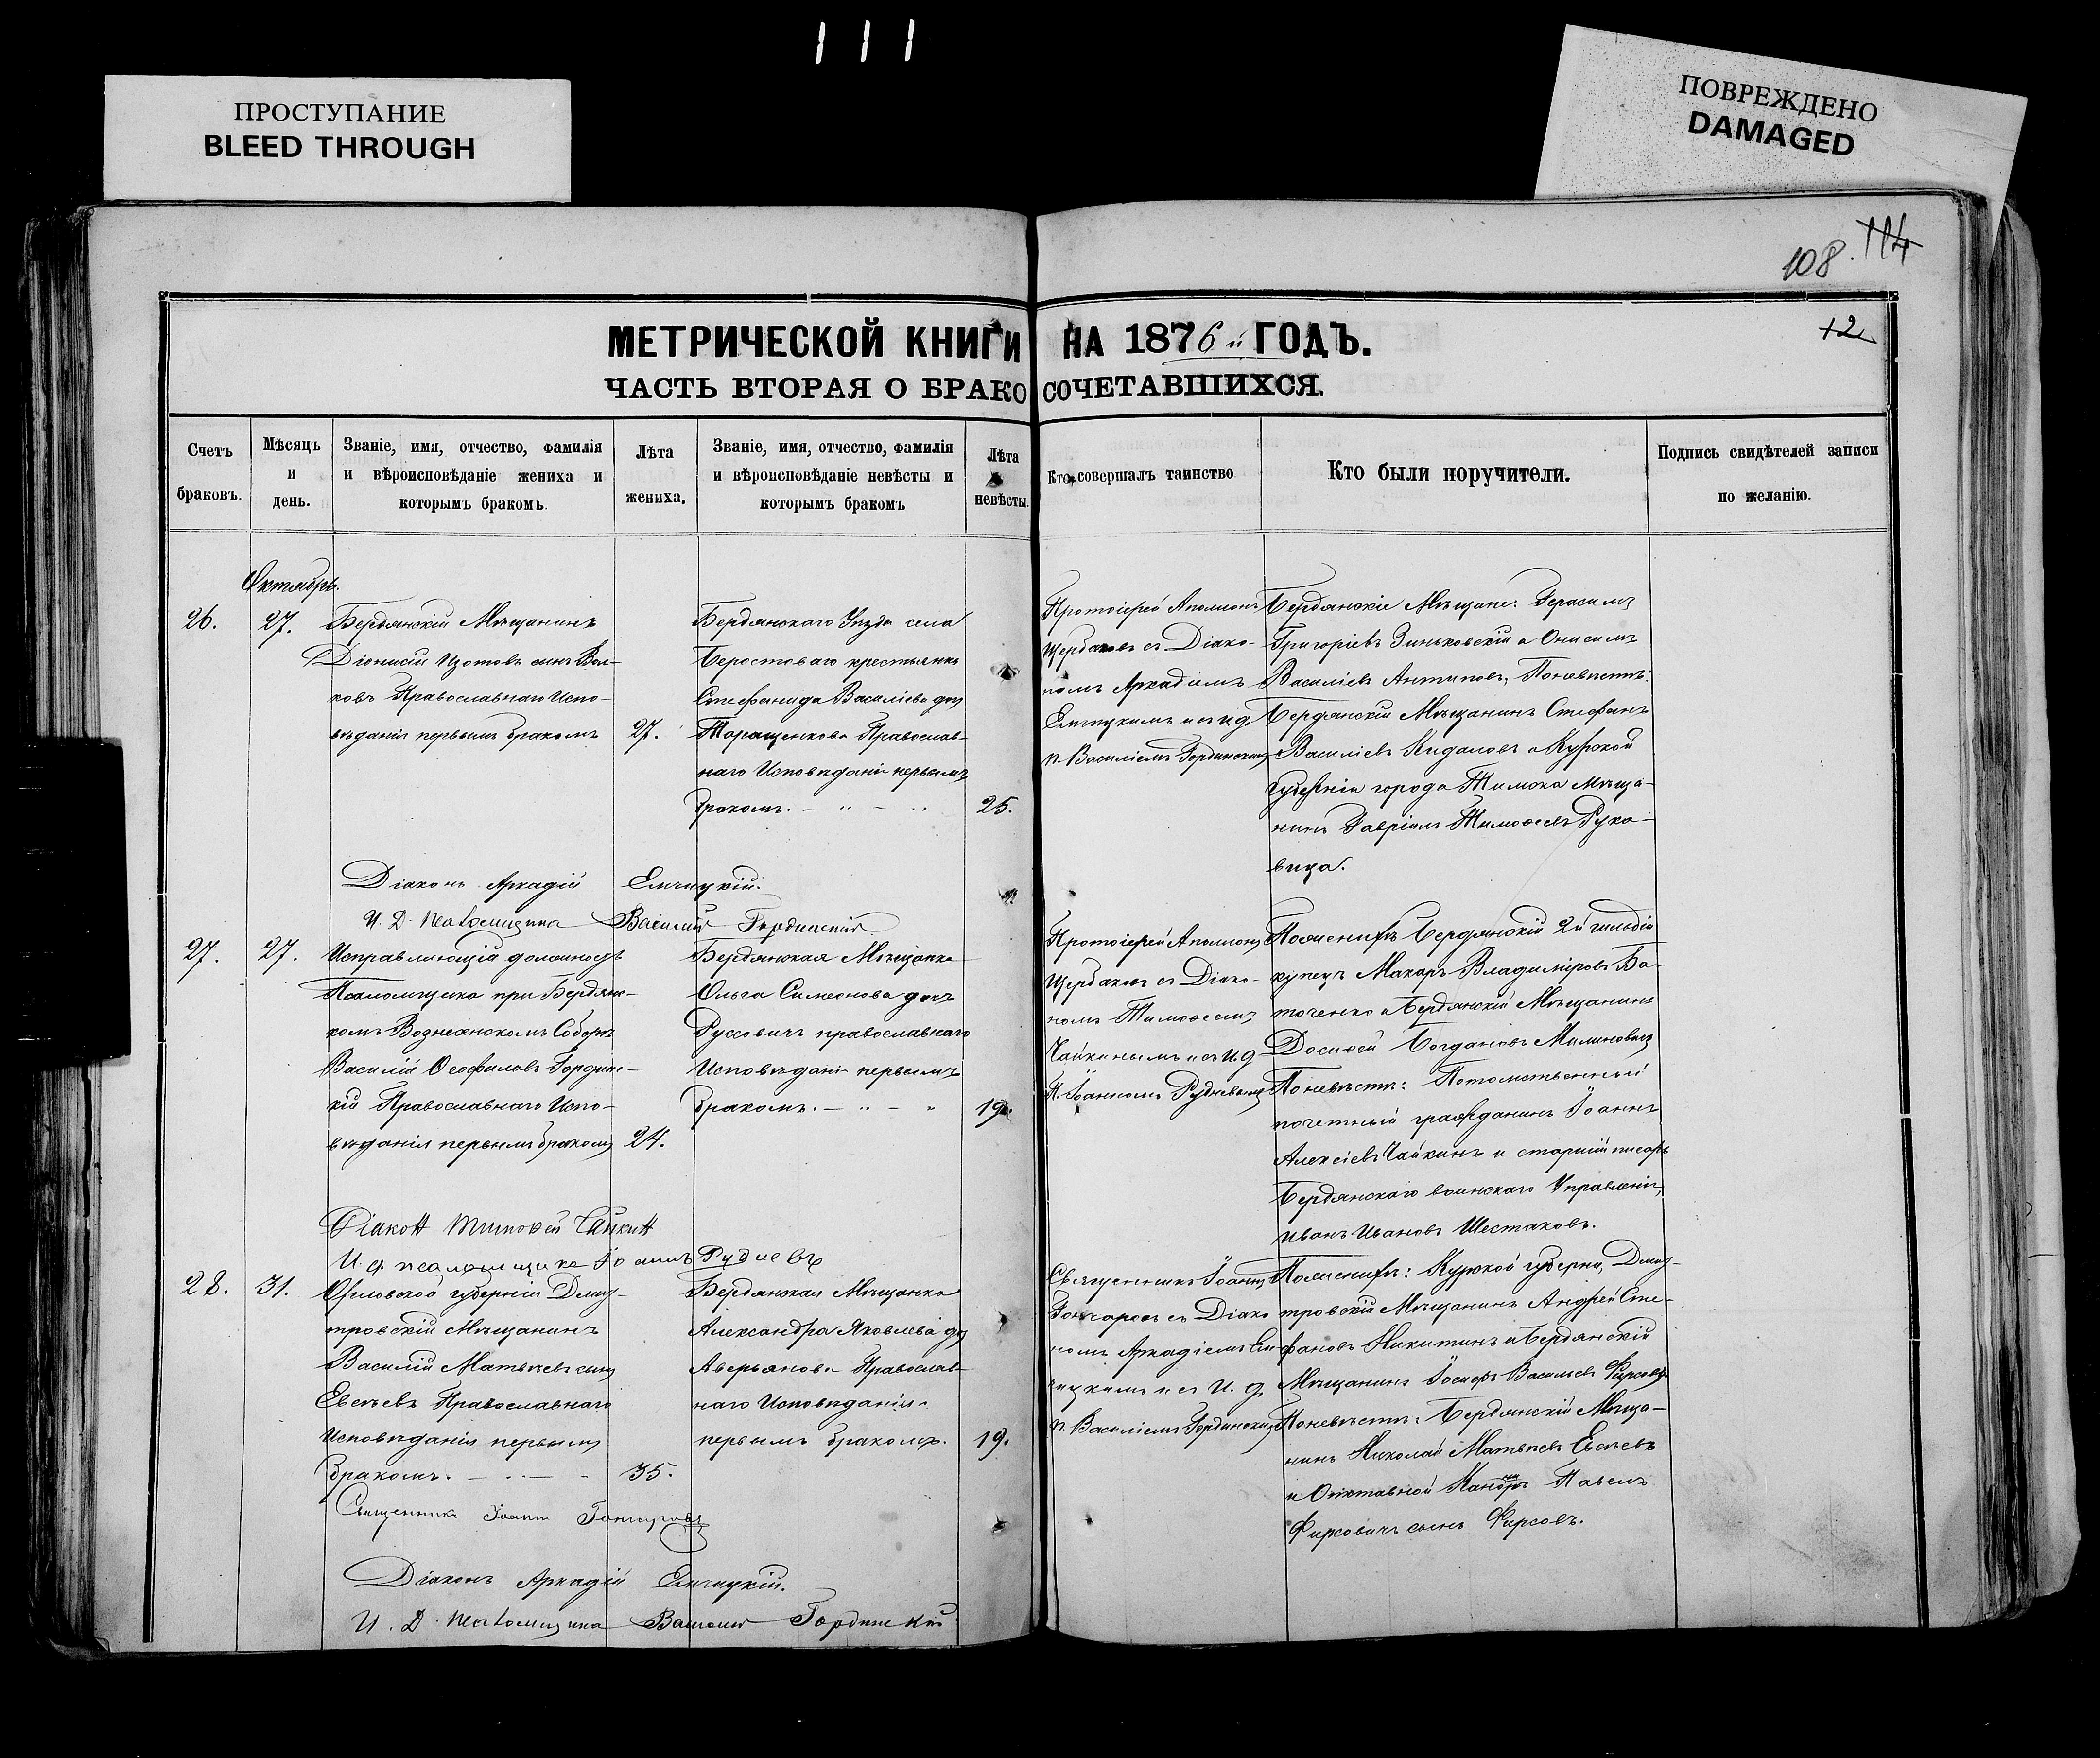 111
ПРОСТУПАНИЕ
BLEED THROUGH
ПОВРЕЖДЕНО
DAMAGED
108. 114
12
МЕТРИЧЕСКОЙ КНИГИ НА 1876 й ГОДЪ.
ЧАСТЬ ВТОРАЯ О БРАКОСОЧЕТАВШИХСЯ.
Счетъ браковъ.
Мѣсяцъ и день.
Званіе, имя, отчество, фамилія и вѣроисповѣданіе жениха и которымъ бракомъ.
Лѣта жениха.
Званіе, имя, отчество, фамилія и вѣроисповѣданіе невѣсты и которымъ бракомъ
Лѣта невѣсты.
Кто совершалъ таинство
Кто были поручители.
Подпись свидѣтелей записи по желанію.
Октябрь.
26.
27.
Бердянскій Мѣщанинъ
Діонисій Изотовъ сынъ Вол-
ковъ Православнаго Испо-
вѣданія первымъ бракомъ
27.
Бердянскаго Уѣзда села
Берестоваго крестьянка
Стефанида Васильева доч
Таращенкова Православ-
наго Исповѣданія первымъ
бракомъ.
25.
Протоіерей Аполлонъ
Щербаковъ съ Діако-
номъ Аркадіемъ
Емчицкимъ и съ и.д.
п. Василіемъ Гординскимъ
Бердянскіе Мѣщане: Герасимъ
Григоріевъ Зиньковскій и Онисимъ
Василіевъ Антиповъ, По невѣстѣ:
Бердянскій Мѣщанинъ Стефанъ
Василіевъ Кидаловъ и Курской
губерніи города Тимска Мѣща-
нинъ Гавріилъ Тимофеевъ Рука-
вица.
Діаконъ Аркадій Емчицкій.
И. Д. псаломщика Василій Гординскій
27.
27.
Исправляющій должность
Псаломщика при Бердянс-
комъ Вознесенскомъ Соборѣ
Василій Ѳеофиловъ Гординс-
кій Православнаго Испо-
вѣданія первымъ бракомъ
24.
Бердянская Мѣщанка
Ольга Симеонова дочь
Руссовичъ православнаго
Исповѣданія первымъ
бракомъ.
19.
Протоіерей Аполлонъ
Щербаковъ съ Діако-
номъ Тимофеемъ
Чайкинымъ и съ и.д.
п. Іоанномъ Рудневымъ
По женихѣ Бердянскій 2й гильдіи
купецъ Макаръ Владиміровъ Ба-
точенко и Бердянскій Мѣщанинъ
Досиѳей Богдановъ Милиновичъ
По невѣстѣ: Потомственный
почетный гражданинъ Іоаннъ
Алексіевъ Чайкинъ и старшій писарь
Бердянскаго воинскаго Управленія,
Иванъ Ивановъ Шестаковъ.
Діаконъ Тимоѳей Чайкин
И. д. псаломщика Іоаннъ Рудневъ
28.
31.
Орловской губерніи Дмит-
тровскій Мѣщанинъ
Василій Матвѣевъ сынъ
Евсѣевъ Православнаго
Исповѣданія первымъ
бракомъ.
35.
Бердянская Мѣщанка
Александра Яковлева доч
Аверьянова Православ-
наго Исповѣданія
первымъ бракомъ.
19.
Священникъ Іоаннъ
Гончаровъ съ Діако
номъ Аркадіемъ Ем-
чицкимъ и съ И. д.
п. Василіемъ Гординскимъ
По женихѣ: Курской губерніи, Дми-
тровскій Мѣщанинъ Андрей Сте-
фановъ Никитинъ и Бердянскій
Мѣщанинъ Іосифъ Васильевъ Фирсовъ
По невѣстѣ: Бердянскій Мѣща-
нинъ Николай Матвѣевъ Евсѣевъ
и Отставной Павелъ
Фирсовичъ сынъ Фирсовъ.
Священникъ Іоаннъ Гончаровъ
Діаконъ Аркадій Емчицкій.
И. Д. псаломщика Василій Гординскій